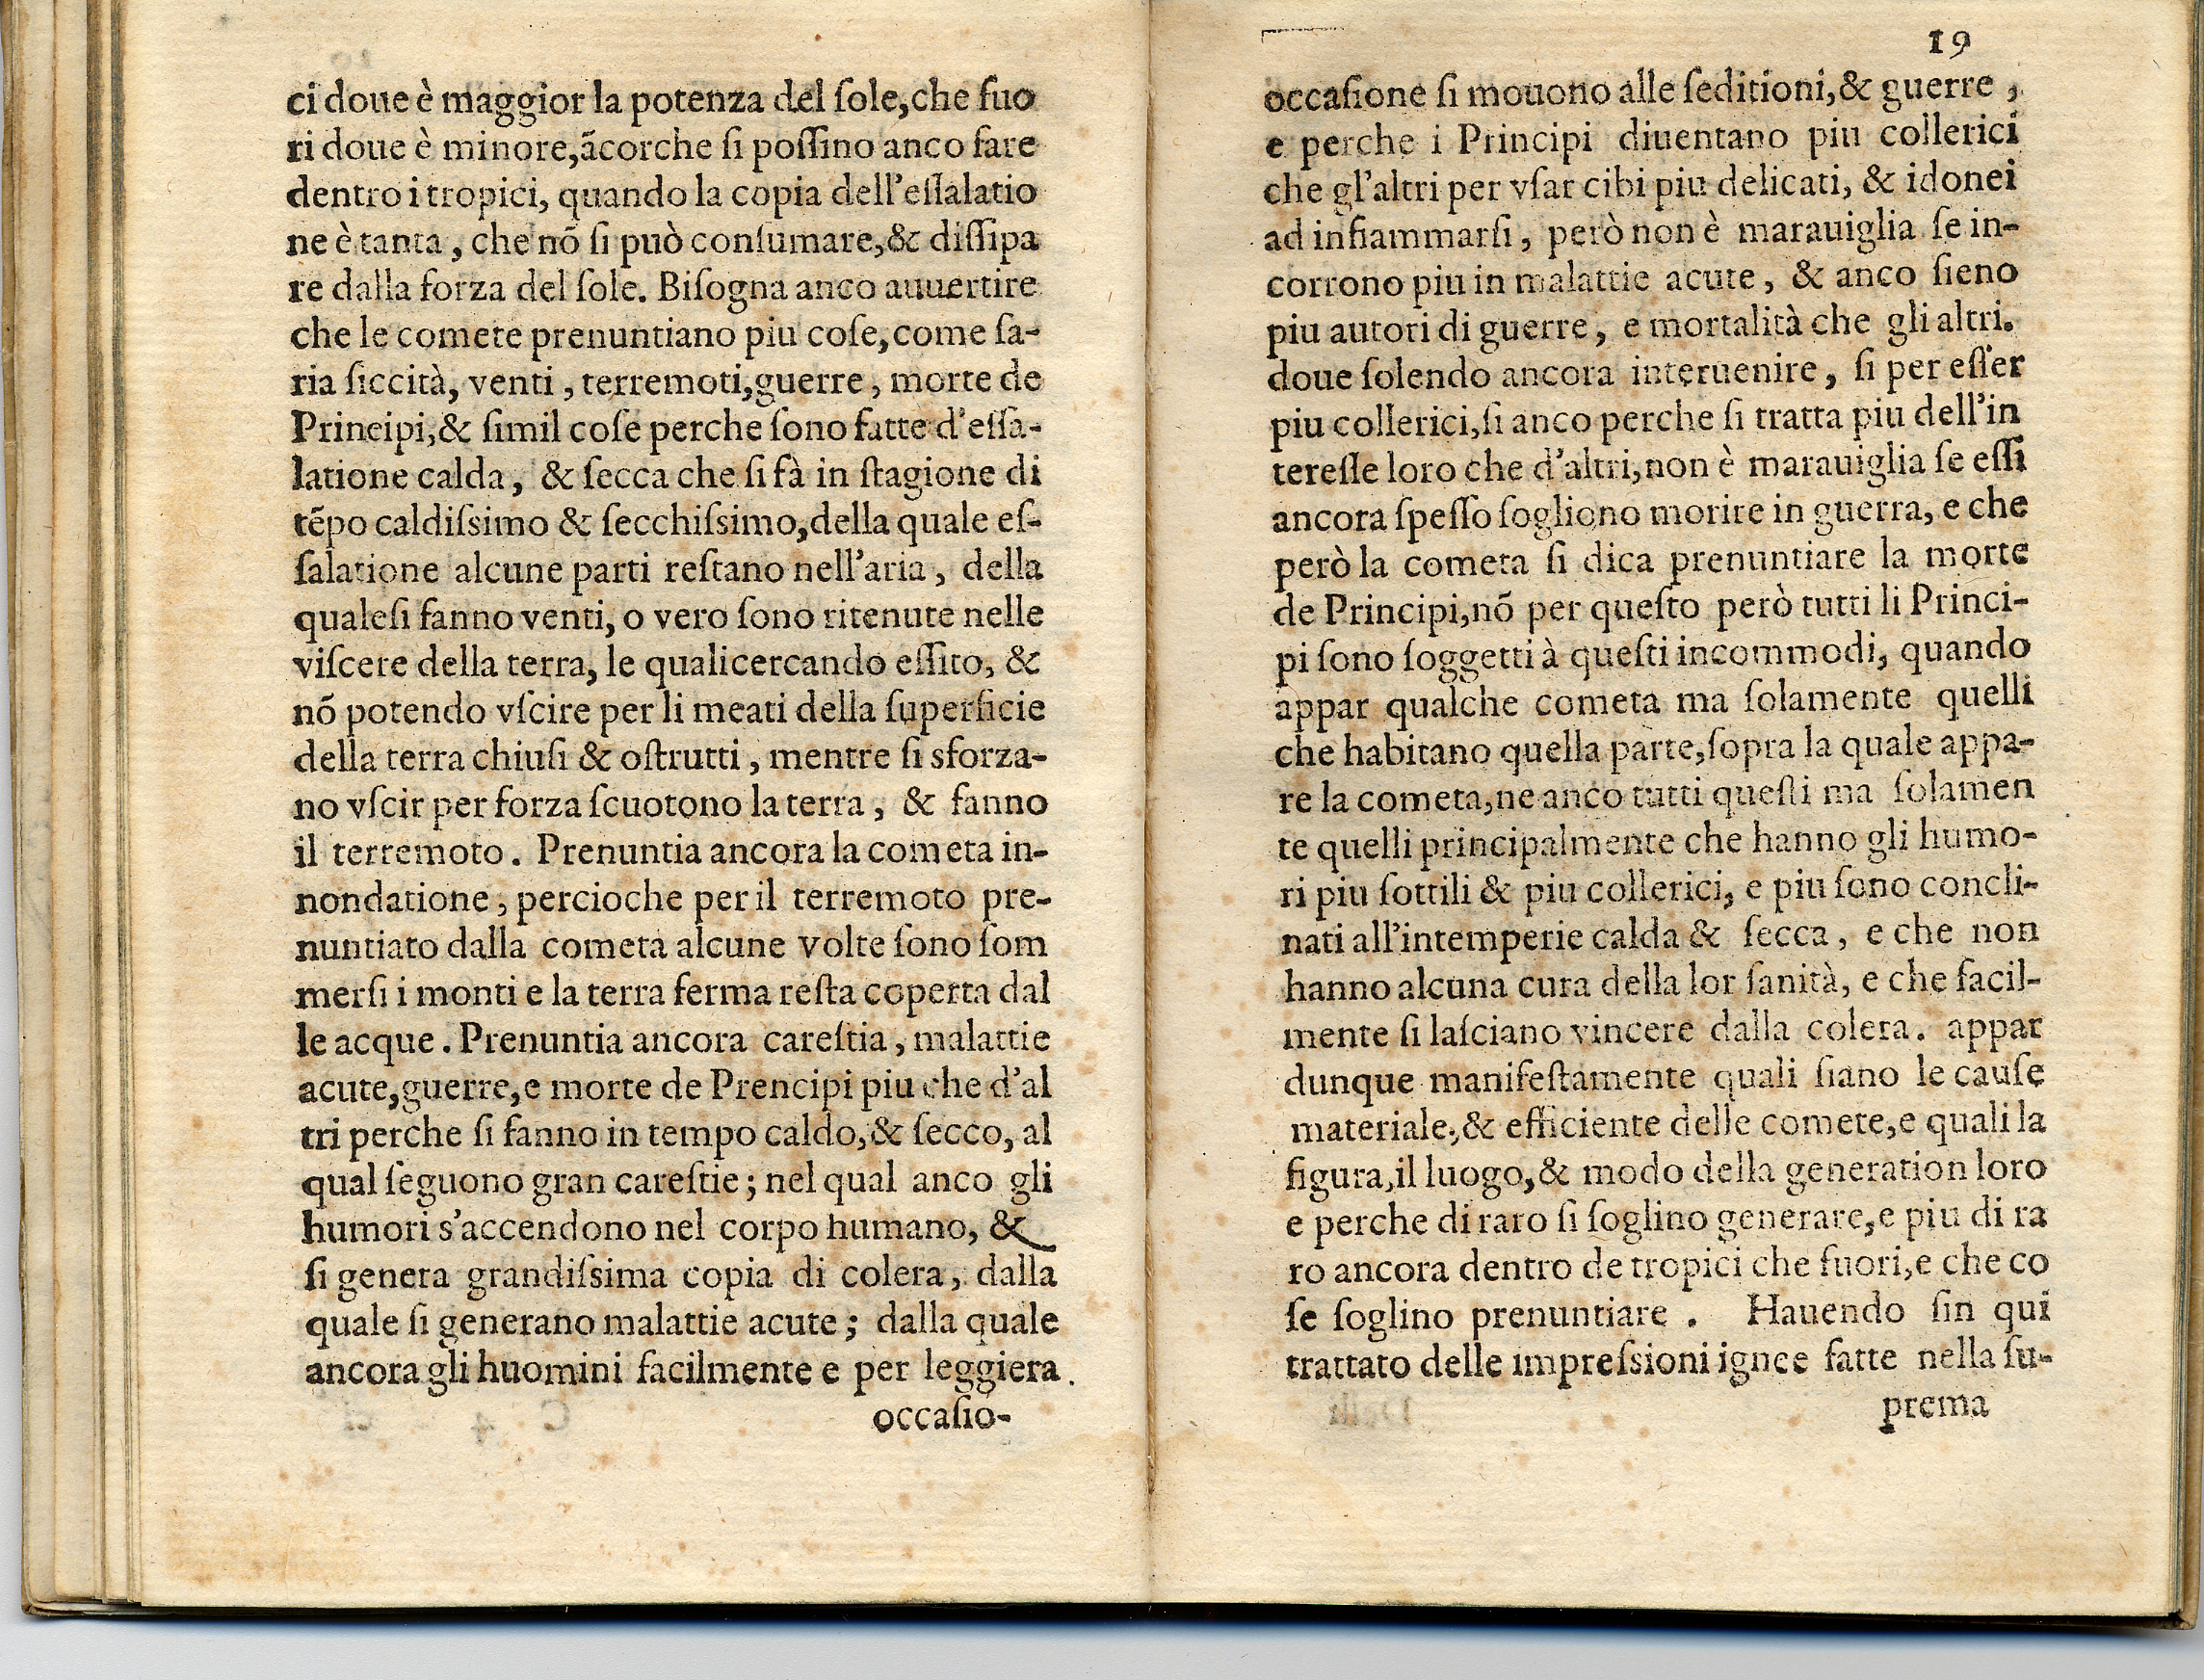 ci doue è maggior la potenza del ſole, che fuo
ri doue è minore, ãcorche ſi poſſino anco fare
dentro i tropici, quando la copia dell'eſſalatio
ne è tanta, che nõ ſi può conſumare, & diſſipa
re dalla forza del ſole. Biſogna anco auuertire
che le comete prenuntiano piu coſe, come ſa-
ria ſiccità, venti, terremoti, guerre, morte de
Principi, & ſimil coſe perche ſono fatte d'eſſa-
latione calda, & ſecca che ſi fà in ſtagione di
tẽpo caldiſsimo & ſecchiſsimo, della quale eſ-
ſalatione alcune parti reſtano nell'aria, della
qualeſi fanno venti, o vero ſono ritenute nelle
viſcere della terra, le qualicercando eſſito, &
nõ potendo vſcire per li meati della ſuperficie
della terra chiuſi & oſtrutti, mentre ſi sforza-
no vſcir per forza ſcuotono la terra, & fanno
il terremoto. Prenuntia ancora la cometa in-
nondatione, percioche per il terremoto pre-
nuntiato dalla cometa alcune volte ſono ſom
merſi i monti e la terra ferma reſta coperta dal
le acque. Prenuntia ancora careſtia, malattie
acute, guerre, e morte de Prencipi piu che d'al
tri perche ſi fanno in tempo caldo, & ſecco, al
qual ſeguono gran careſtie; nel qual anco gli
humori s'accendono nel corpo humano, &
ſi genera grandiſsima copia di colera, dalla
quale ſi generano malattie acute; dalla quale
ancora gli huomini facilmente e per leggiera
occaſio-
19
occaſione ſi mouono alle ſeditioni, & guerre,
e perche i Principi diuentano piu collerici
che gl'altri per vſar cibi piu delicati, & idonei
ad infiammarſi, però non è marauiglia ſe in-
corrono piu in malattie acute, & anco ſieno
piu autori di guerre, e mortalità che gli altri.
doue ſolendo ancora interuenire, ſi per eſſer
piu collerici, ſi anco perche ſi tratta piu dell'in
tereſſe loro che d'altri, non è marauiglia ſe eſſi
ancora ſpeſſo ſogliono morire in guerra, e che
però la cometa ſi dica prenuntiare la morte
de Principi, nõ per queſto però tutti li Princi-
pi ſono ſoggetti à queſti incommodi, quando
appar qualche cometa ma ſolamente quelli
che habitano quella parte, ſopra la quale appa-
re la cometa, ne anco tutti queſti ma ſolamen
te quelli principalmente che hanno gli humo-
ri piu ſottili & piu collerici, e piu ſono concli-
nati all'intemperie calda & ſecca, e che non
hanno alcuna cura della lor ſanità, e che facil-
mente ſi laſciano vincere dalla colera. appar
dunque manifeſtamente quali ſiano le cauſe
materiale, & efficiente delle comete, e quali la
figura, il luogo, & modo della generation loro
e perche di raro ſi ſoglino generare, e piu di ra
ro ancora dentro de tropici che fuori, e che co
ſe ſoglino prenuntiare. Hauendo ſin qui
trattato delle impreſsioni ignee fatte nella ſu-
prema